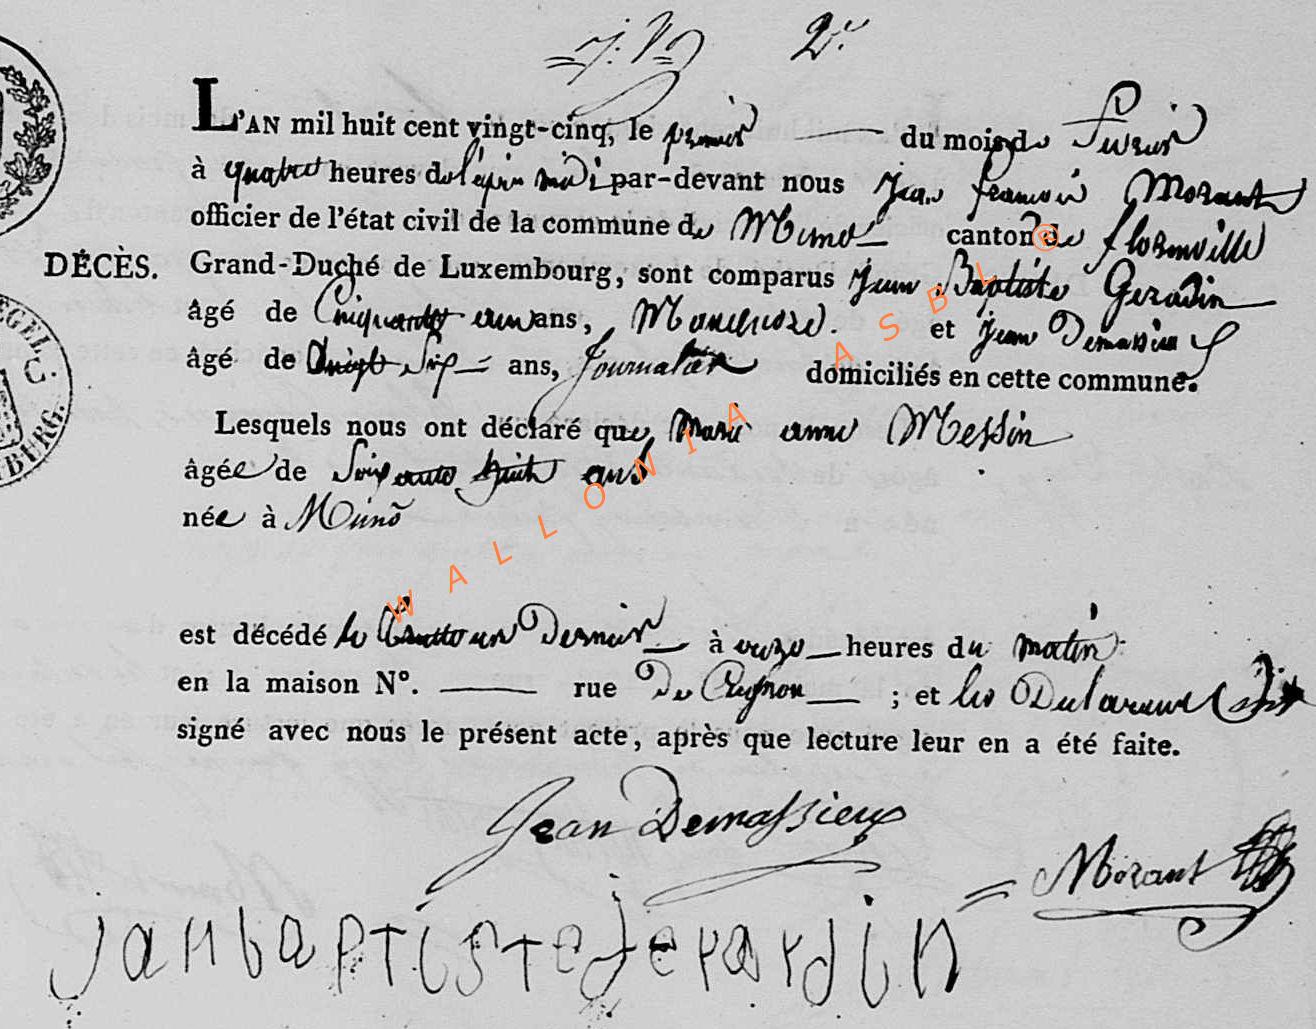 2.
L'AN mil huit cent vingt-cinq, le premier du mois de fevrier
à quatre heures de l'après midi par-devant nous Jean françois Morant
officier de l'état civil de la commune de Muno canton de florenville
DÉCÈS.
Grand-Duché de Luxembourg, sont comparus Jean Baptiste Gerardin
âgé de Cinquante ans, Manœuvre. et Jean Demassieux
âgé de Vingt Six ans, Journalier domiciliés en cette commune.
Lesquels nous ont déclaré que Marie anne Messin
âgée de Soixante huit ans
née à Muno
est décédé le Trente un Dernier à onze heures du matin
en la maison N°. rue De Cugnon ; et les Declarans ont
signé avec nous le présent acte, après que lecture leur en a été faite.
Jean Demassieux
Morant
janbaptistejerardin
EGEL.
BURG.
WALLONIA ASBL ®